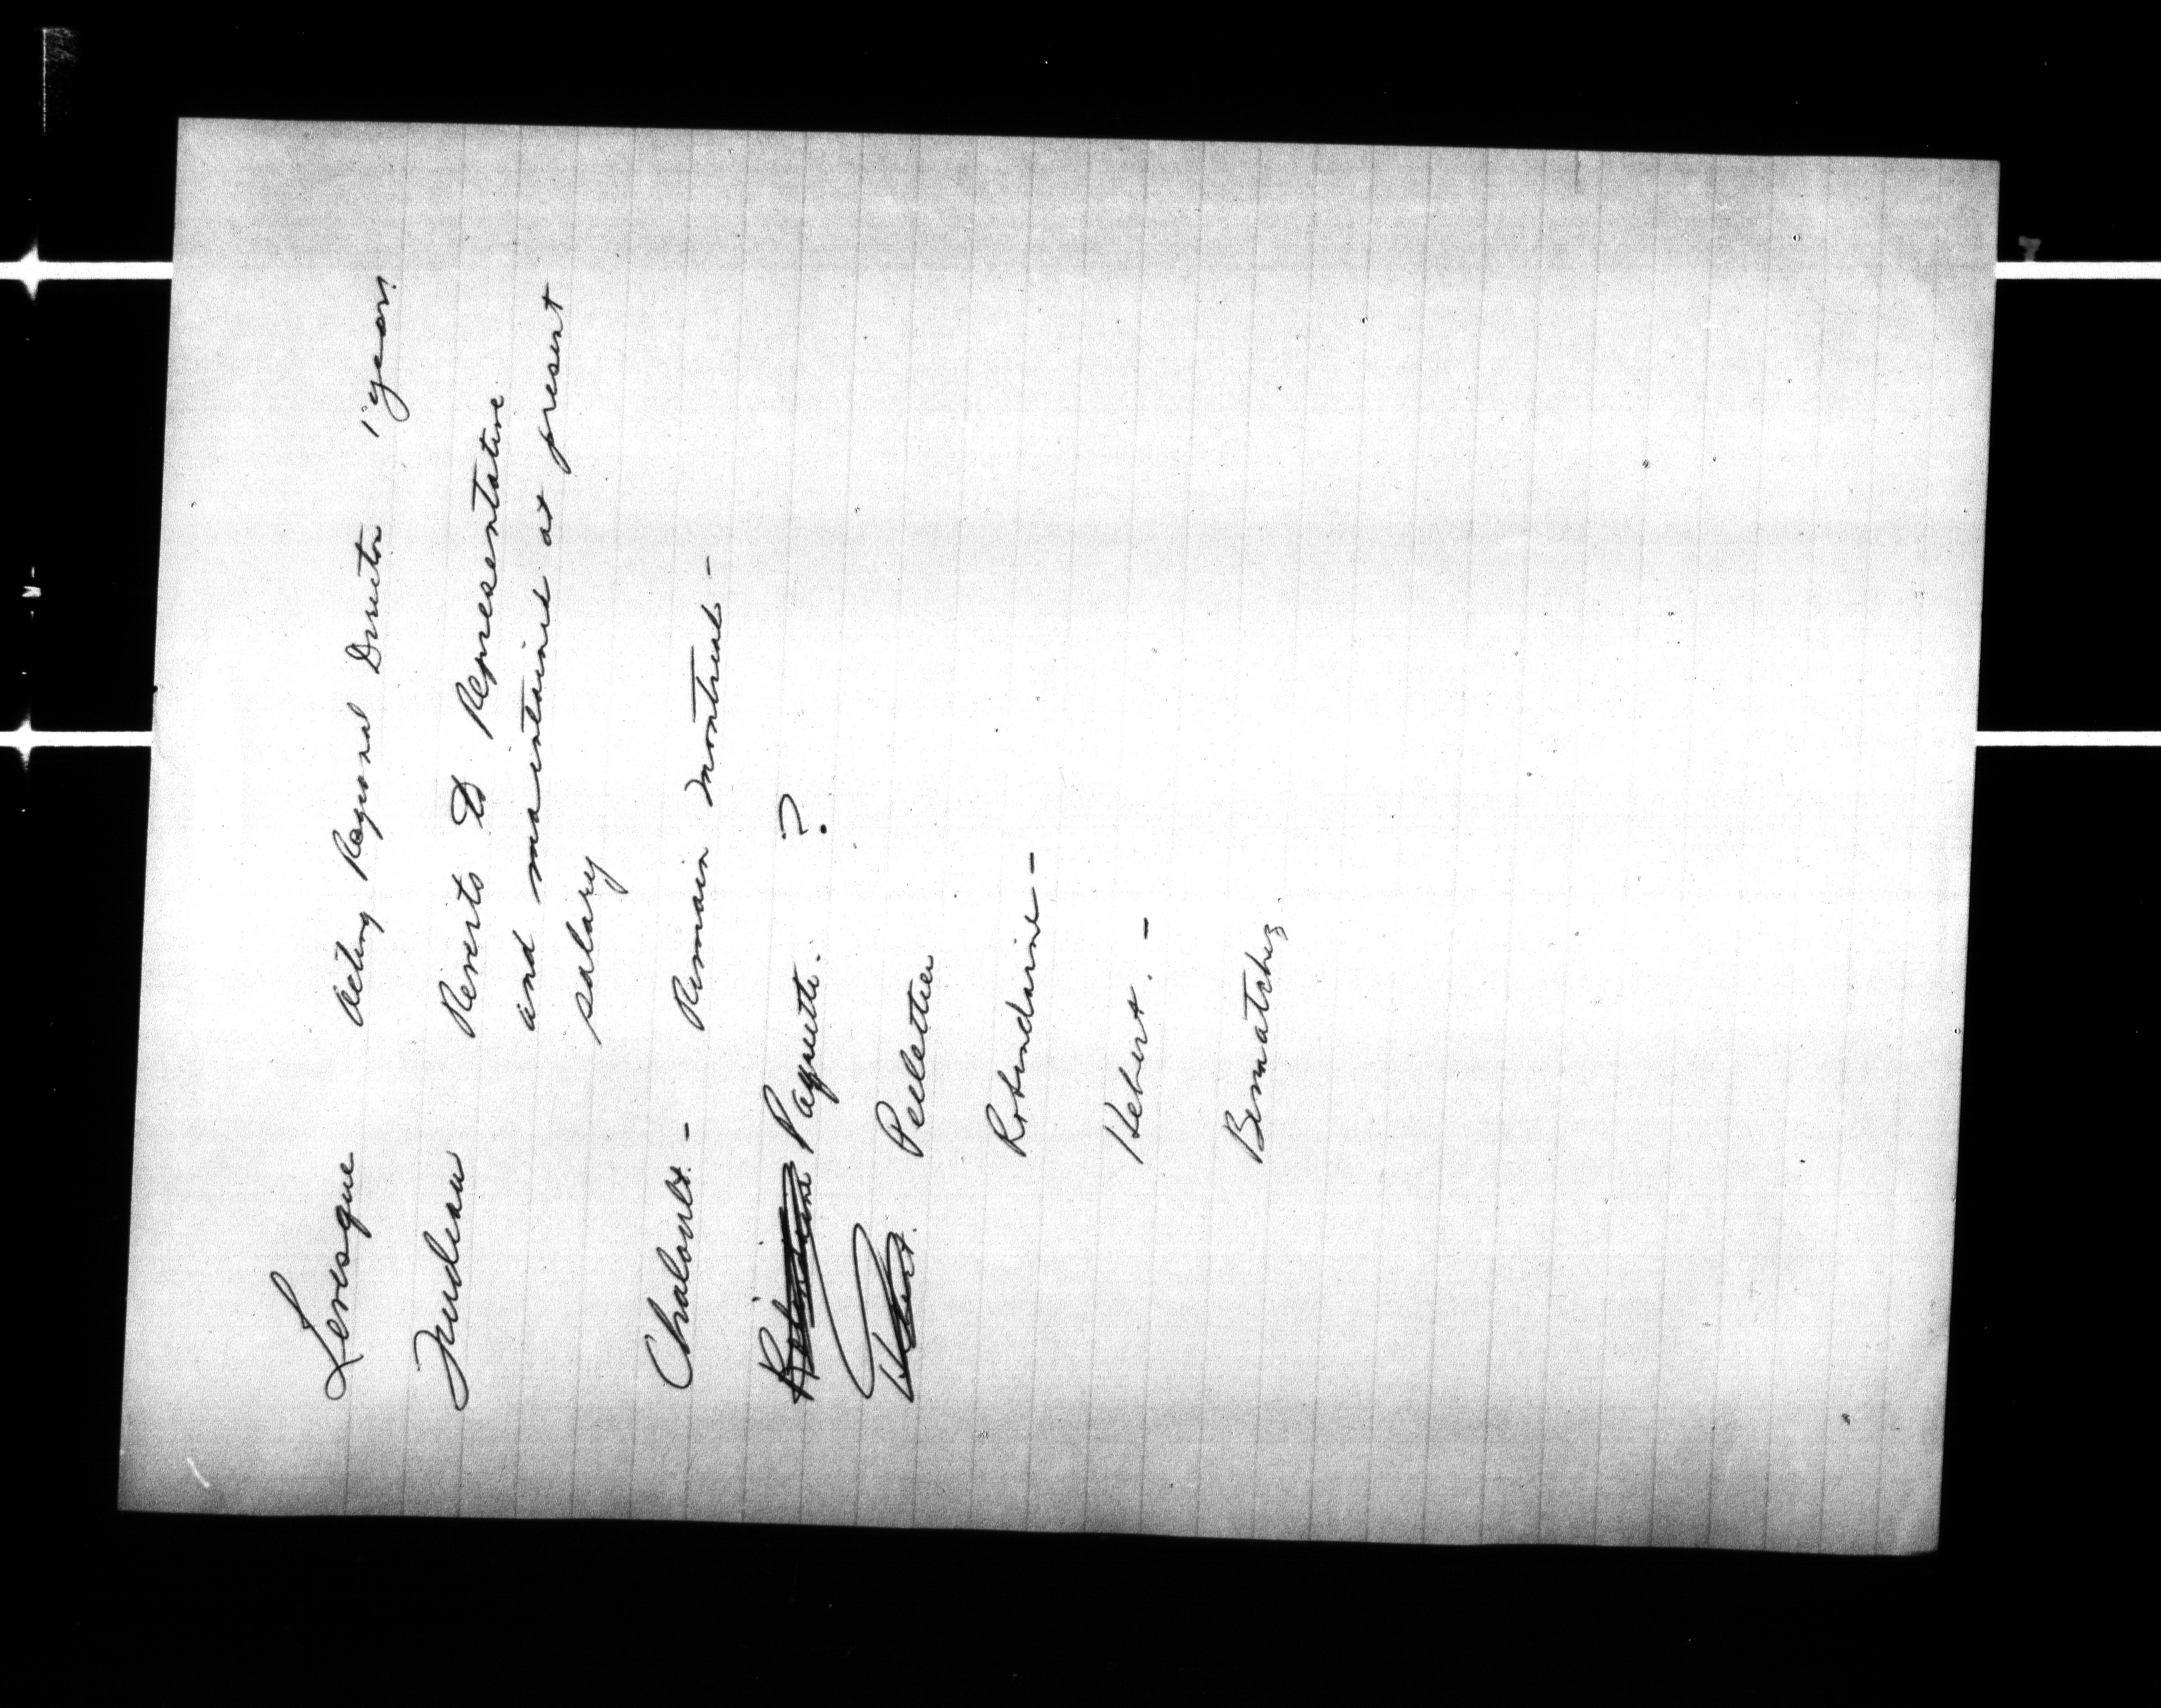 Levesque Acting Regional Director 1 year
Trudeau Reverts to Representative
and maintained at present
salary
Chaloult. - Remain Montreal -
Robindaine Paquette. ?
Hebert. Pelletier
Robindaine -
Hebert. -
Bernatchez